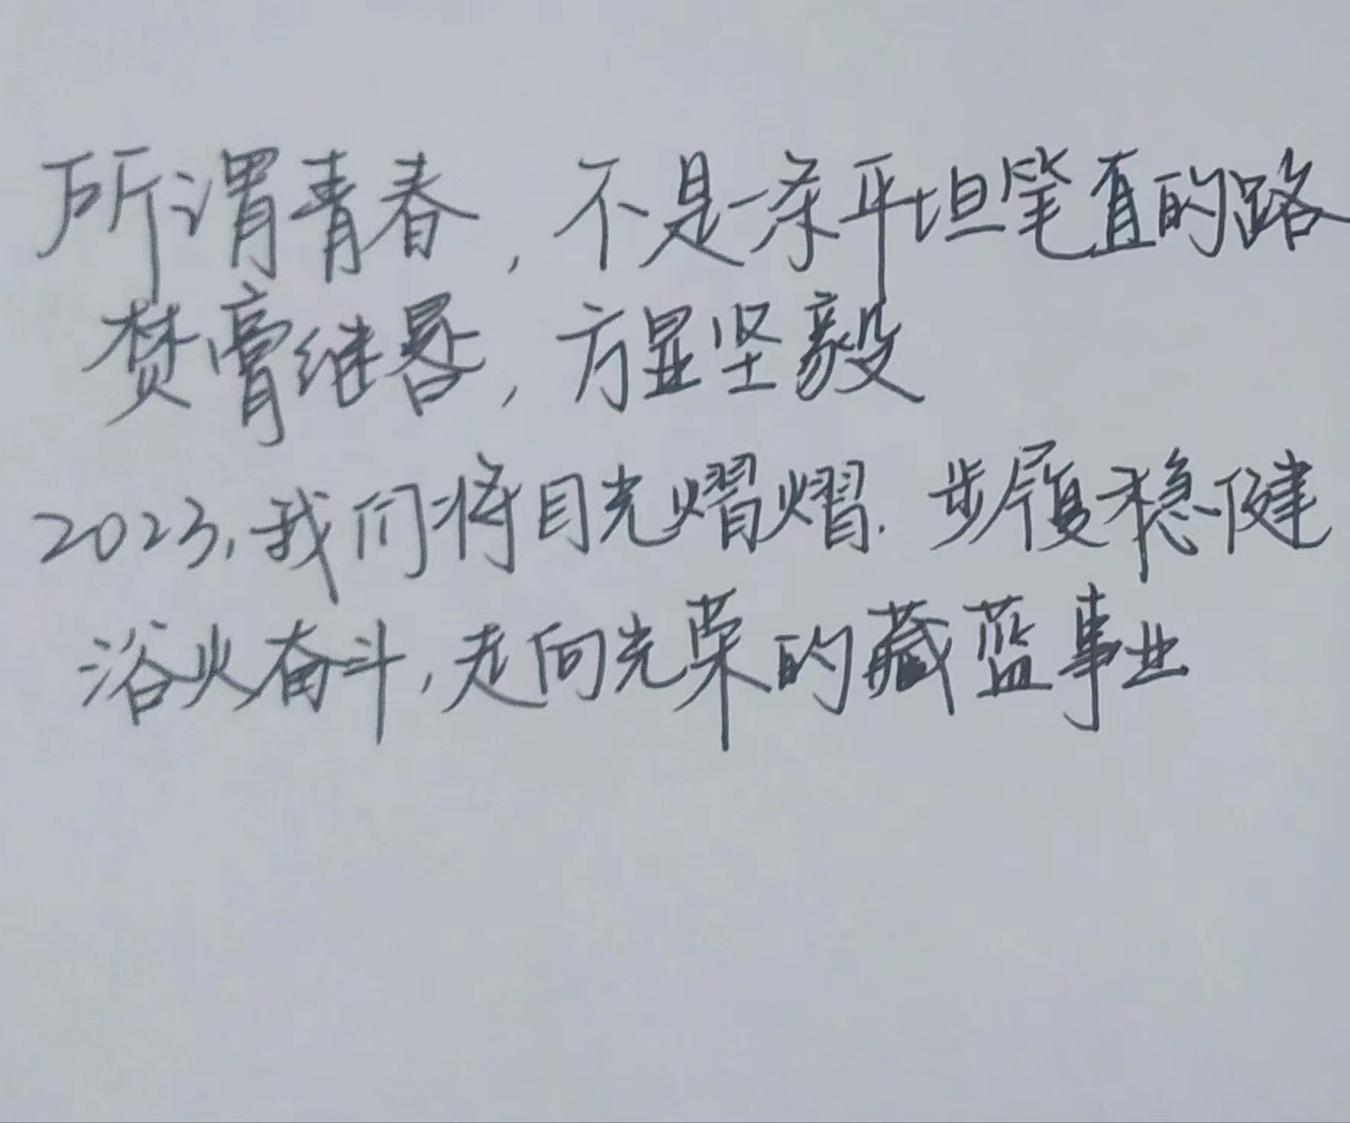 所谓青春，不是一条平坦笔直的路
焚膏继晷，方显坚毅
2023，我们将目光熠熠．步履稳健
浴火奋斗，走向光荣的藏蓝事业